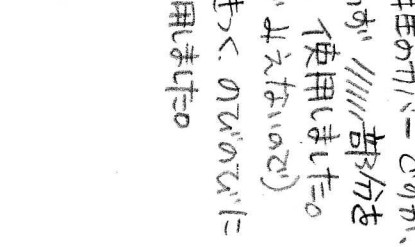 カバーですが、
が //////部分を
使用しました。
みえないので)
く、のびのびに
用しました。